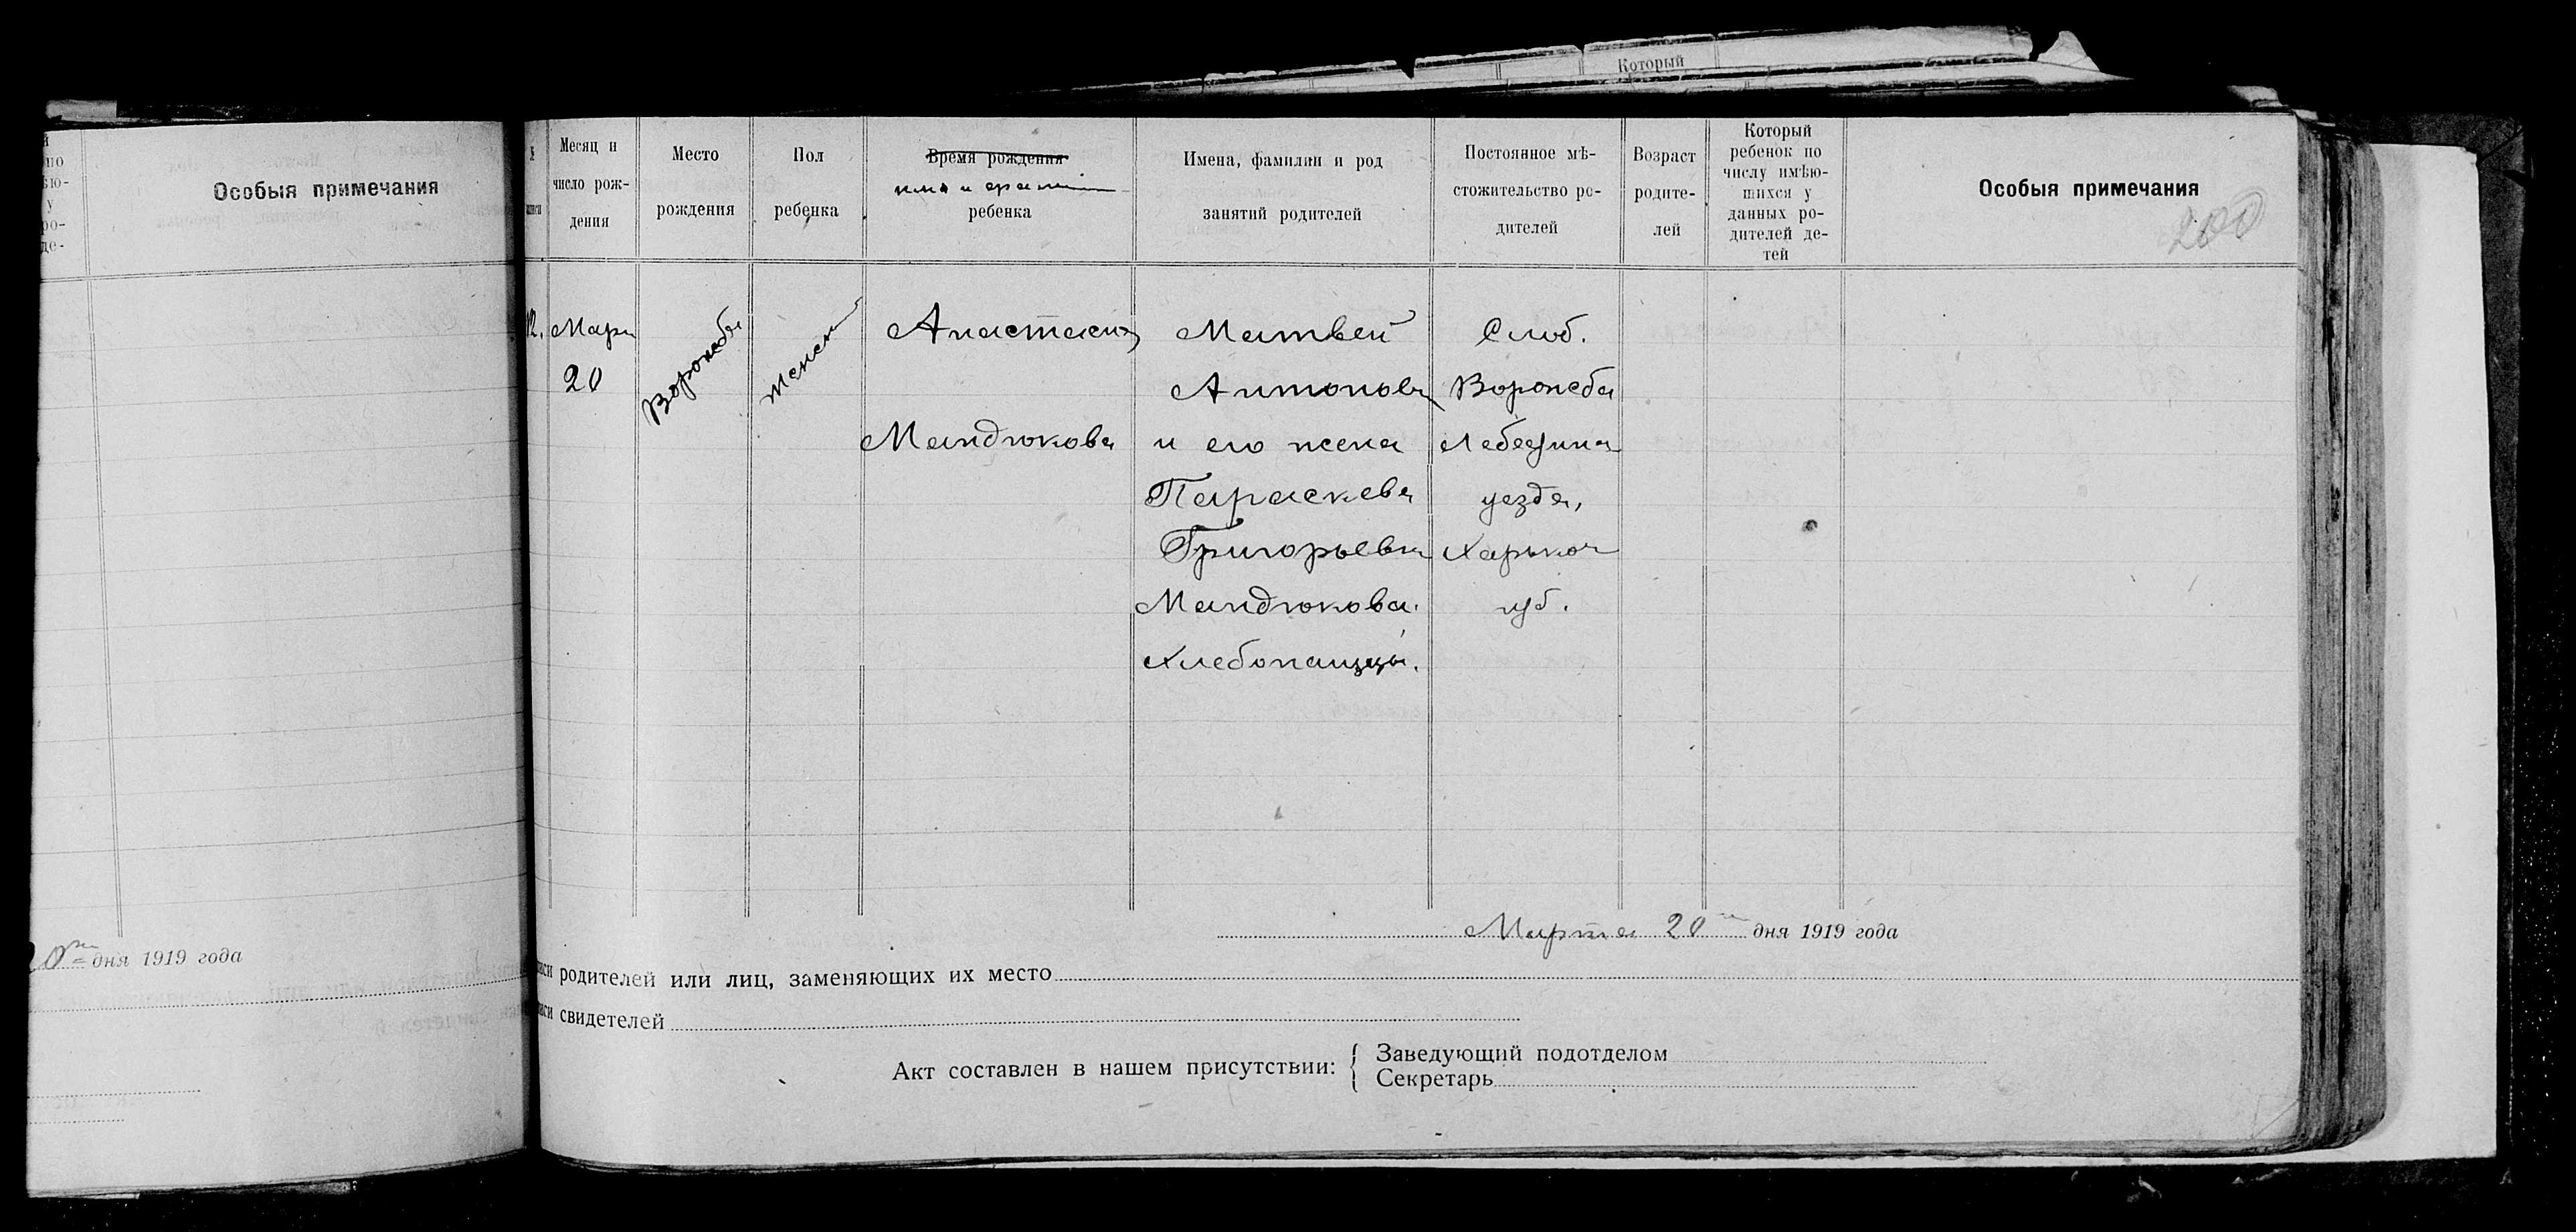 Который
Особыя примечания
дня 1919 года
Месяц и число рож-дения
Место рождения
Пол ребенка
Время рождения
имя и фамилия
ребенка
Имена, фамилии и род занятий родителей
Постоянное мѣ-стожительство ро-дителей
Возраст родите-лей
Который ребенок по числу имѣю-щихся у данных ро-дителей де-тей
Особыя примечания
200
Март
20
Ворожба
женский
Анастасия
Мандюкова
Матвей
Антонов
и его жена
Параскева
Григорьевна
Мандюкова.
Хлебопашцы.
Слоб.
Ворожба
Лебедина
уезда,
Харьков
губ.
Марта 20 дня 1919 года
родителей или лиц, заменяющих их место
свидетелей
Акт составлен в нашем присутствии:
Заведующий подотделом
Секретарь